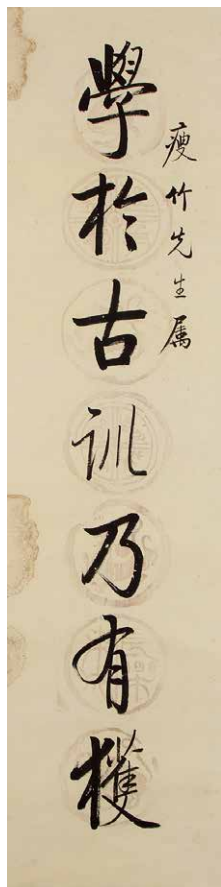 瘦竹先生属
學於古訓乃有獲